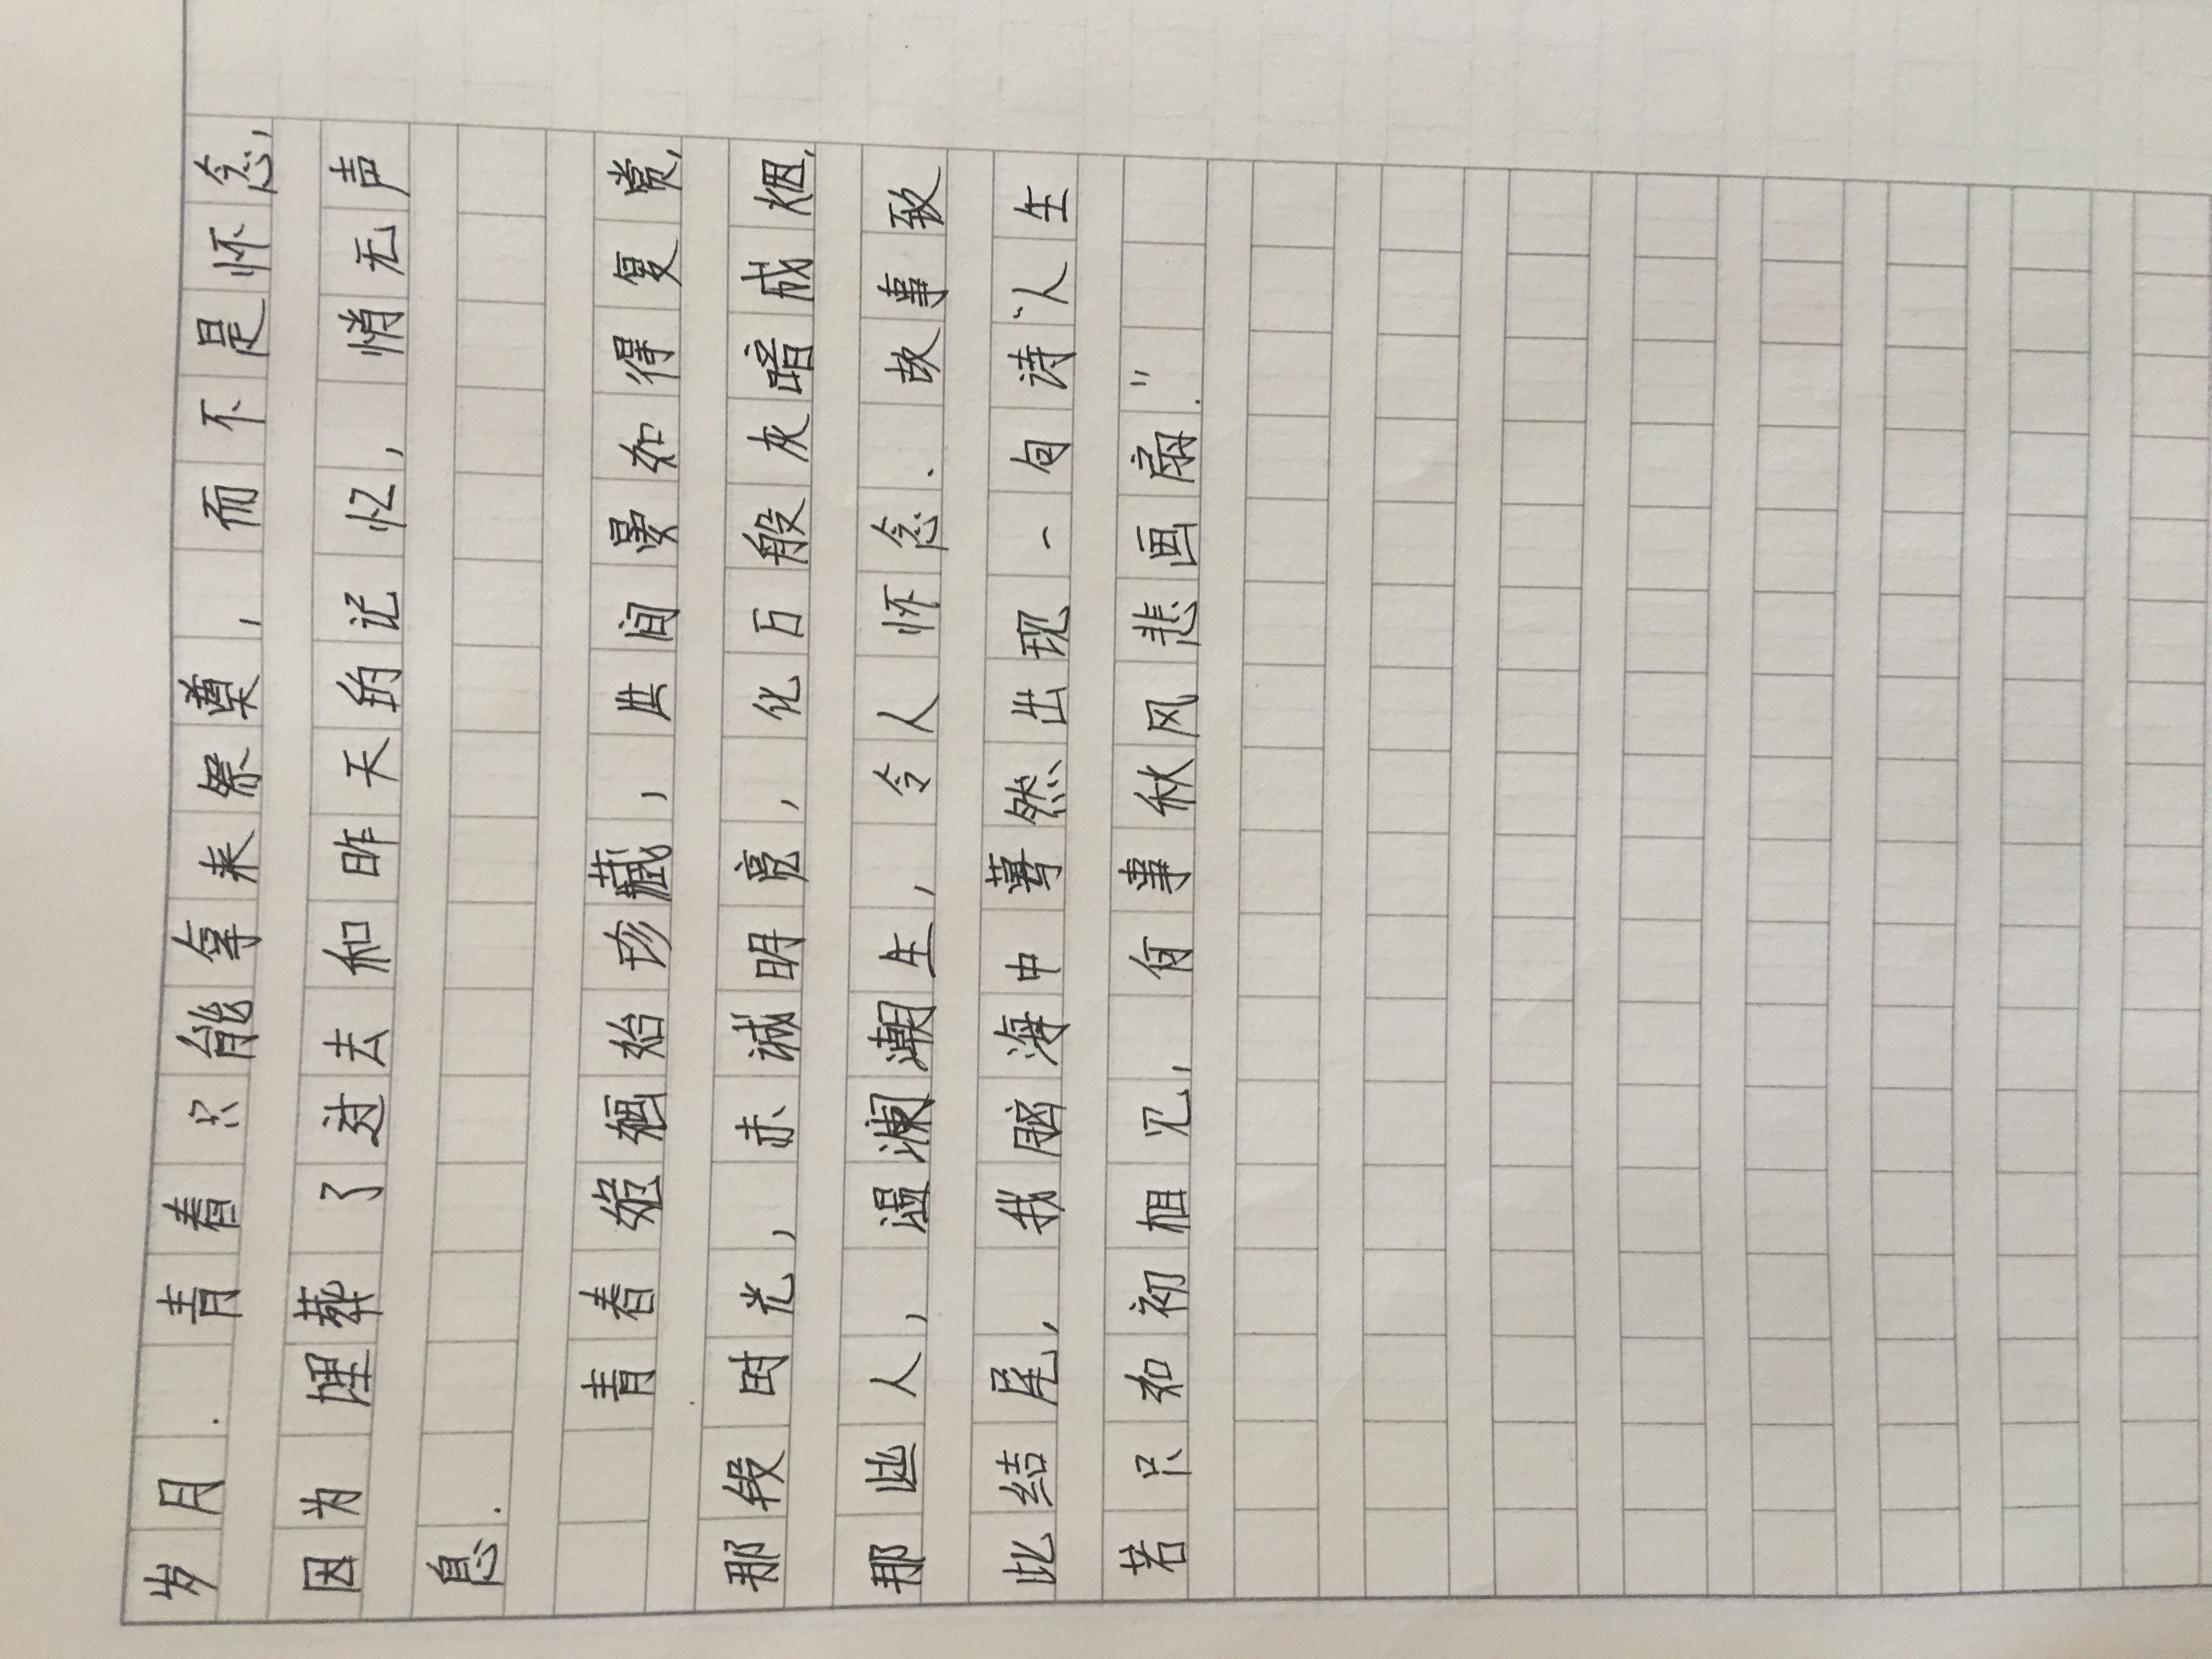 岁月.青春只能拿来祭奠，而不是怀念，
因为埋葬了过去和昨天的记忆，悄无声
息.
青春始珍藏，世间晏如得复赏，
那段时光，赤诚明亮，化万般灰暗成烟，
那些人，温澜潮生，令人怀念.故事致
此结尾，我脑海中蓦然出现一句诗“人生
若只如初相见，何事秋风悲画扇.”